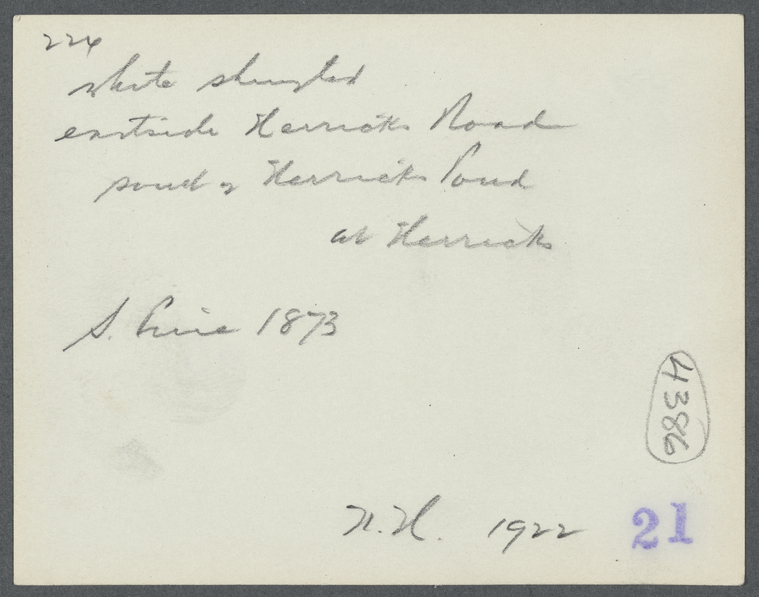 224
white shingled
eastside Herricks Road
south of Herricks Pond
at Herricks
S. Price 1873
4386
N.H. 1922
21